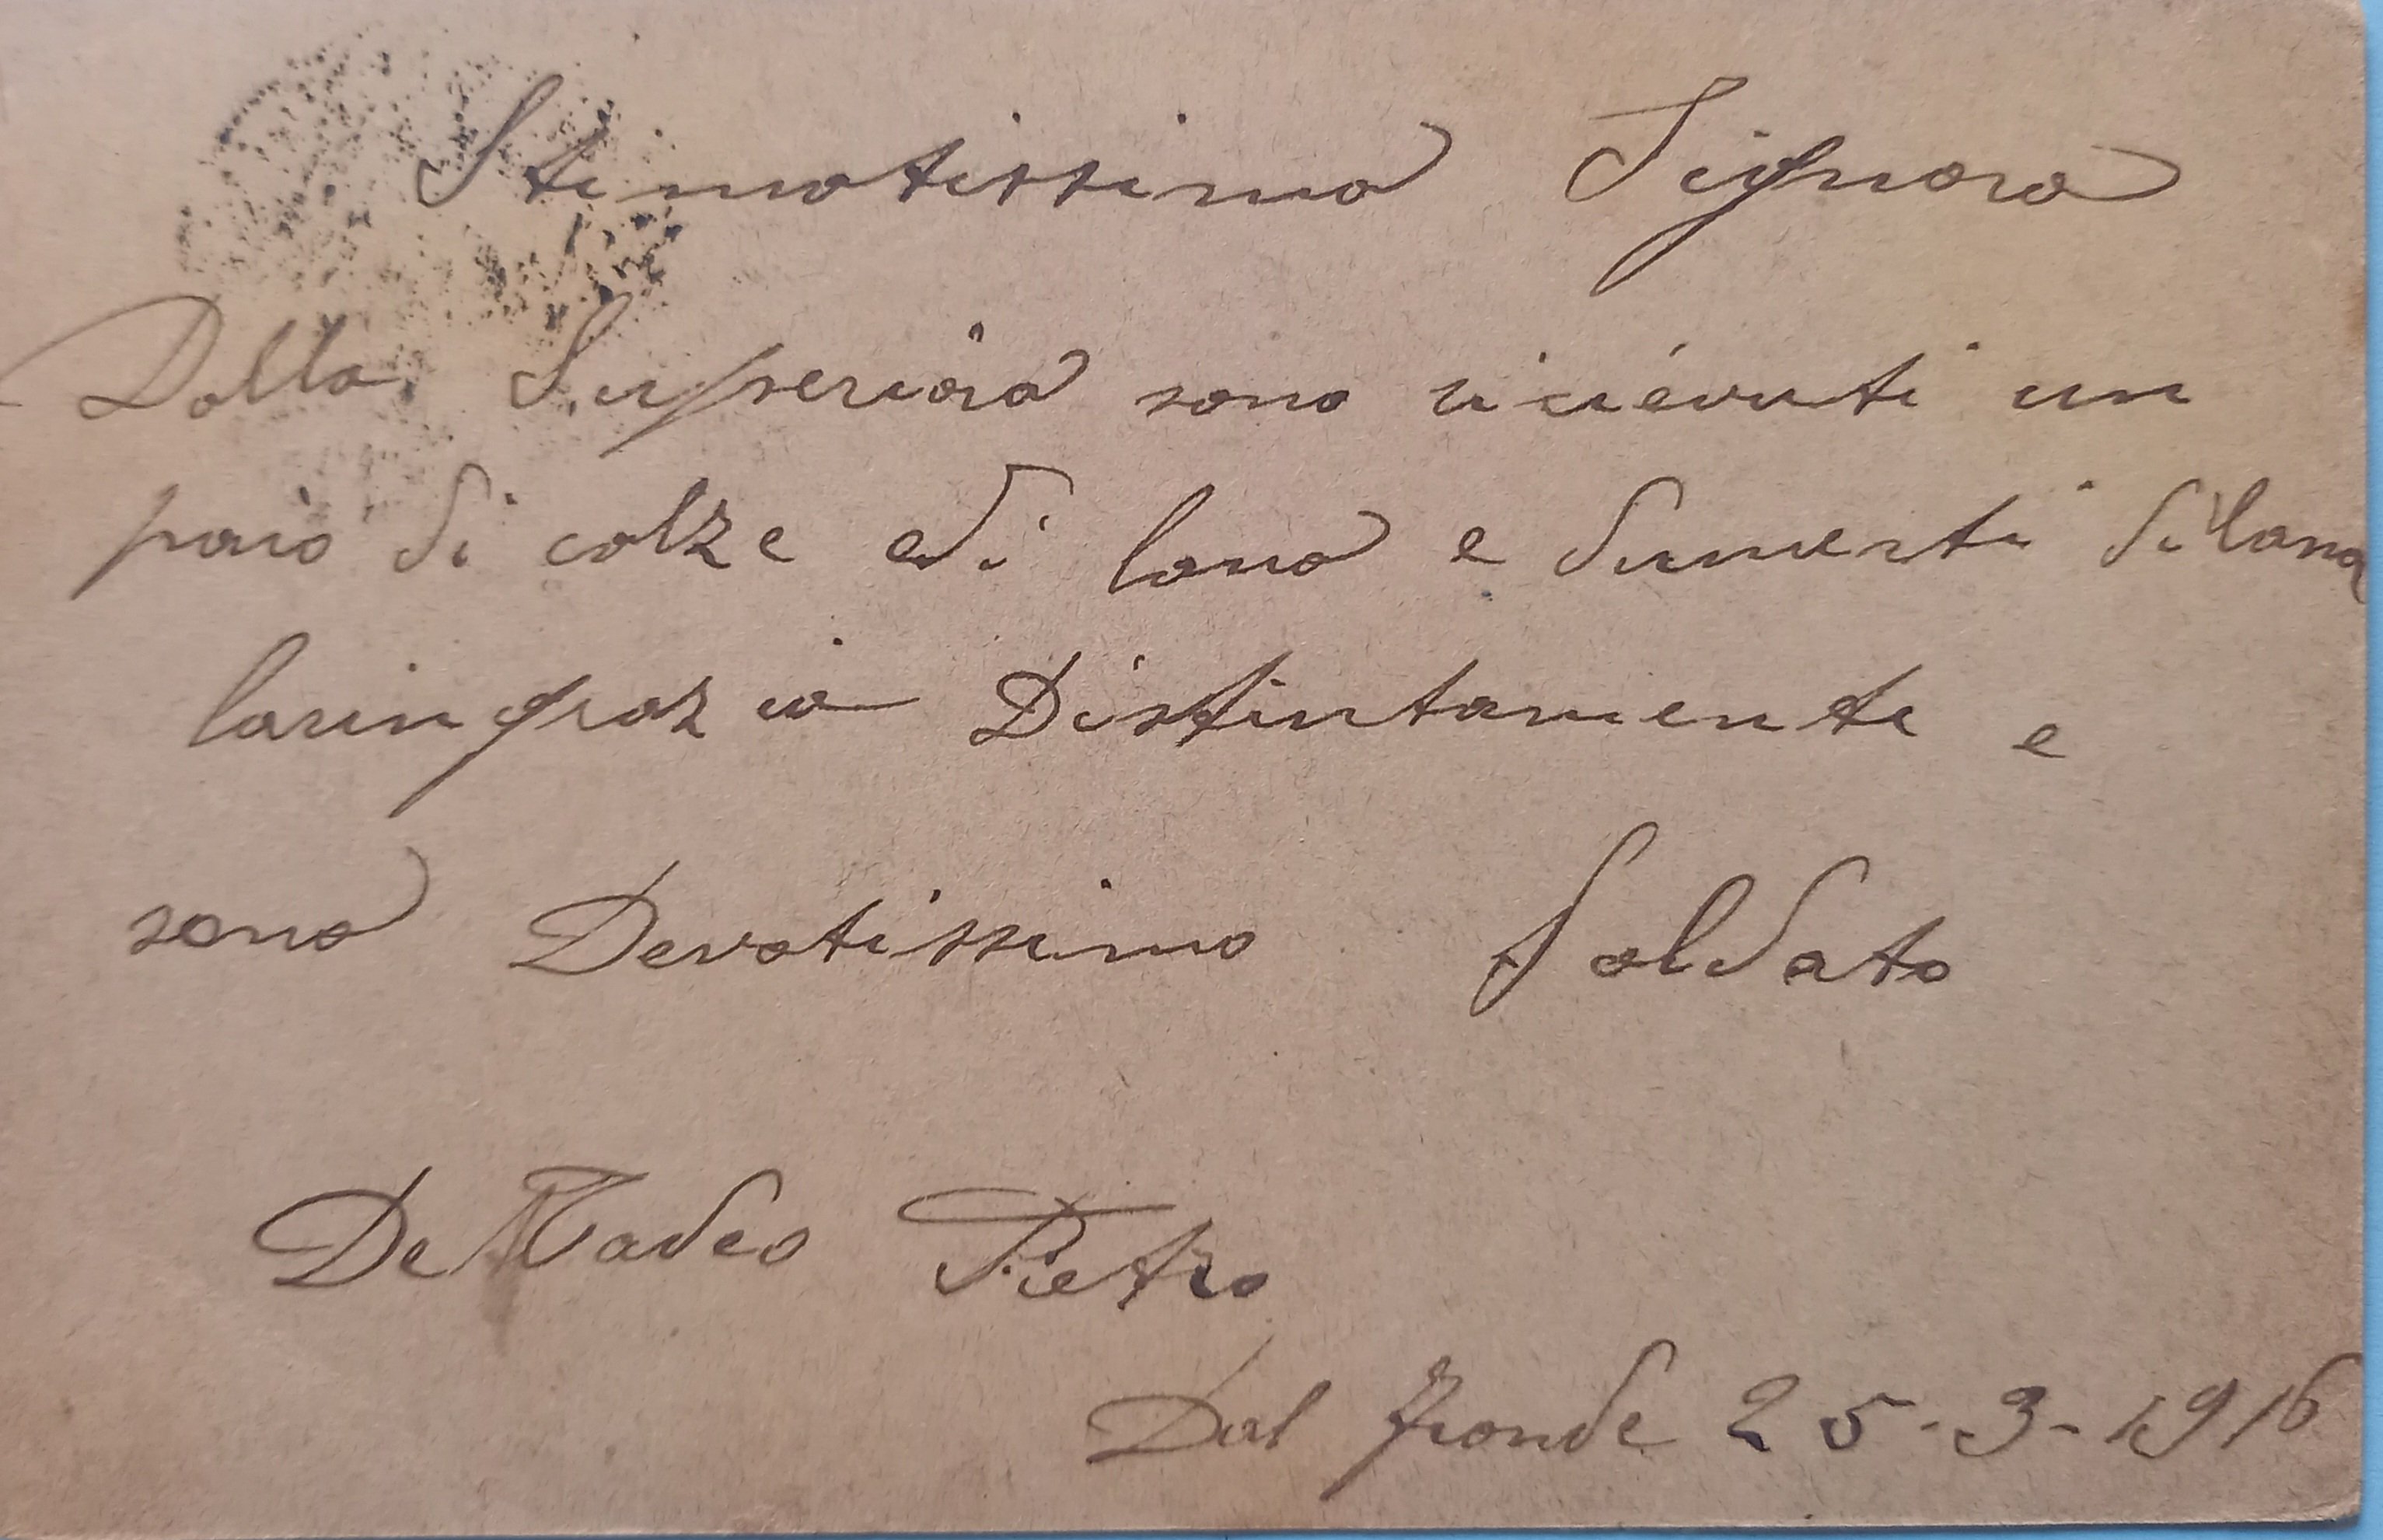 Stimatissima Signora
Dalla Superiora sono ricievuti un
paio di calze edi lana e di lana
laringrazia Distintamente e
sono Devotissimo Soldato
De Tadeo Pietro
Dal fronde 25-3-1916